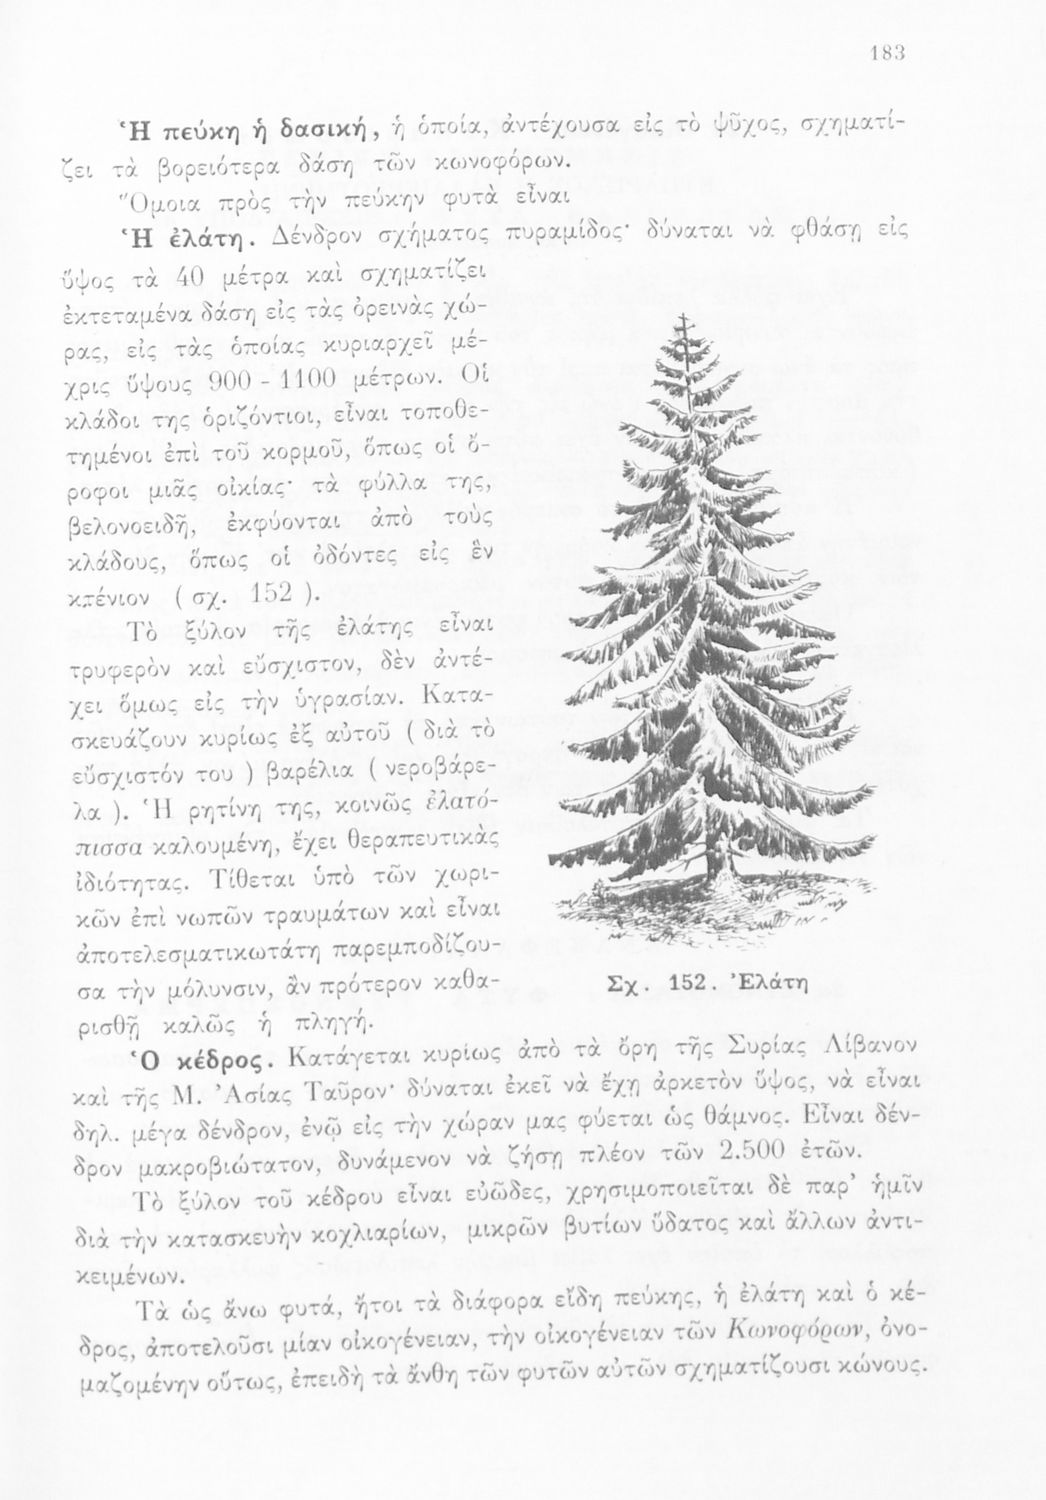 183
Ἡ πεύκη ἡ δασική, ἡ ὁποία, ἀντέχουσα εἰς τὸ ψῦχος, σχηματί-
ζει τὰ βορειότερα δάση τῶν κωνοφόρων.
Ὅμοια πρὸς τὴν πεύκην φυτὰ εἶναι
Ἡ ἐλάτη. Δένδρον σχήματος πυραμίδος· δύναται νὰ φθάσῃ εἰς
ὕψος τὰ 40 μέτρα καὶ σχηματίζει
ἐκτεταμένα δάση εἰς τὰς ὀρεινὰς χώ-
ρας, εἰς τὰς ὁποίας κυριαρχεῖ μέ-
χρις ὕψους 900 - 1100 μέτρων. Οἱ
κλάδοι της ὁριζόντιοι, εἶναι τοποθε-
τημένοι ἐπὶ τοῦ κορμοῦ, ὅπως οἱ ὄ-
ροφοι μιᾶς οἰκίας· τὰ φύλλα της,
βελονοειδῆ, ἐκφύονται ἀπὸ τοὺς
κλάδους, ὅπως οἱ ὀδόντες εἰς ἓν
κτένιον ( σχ. 152 ).
Τὸ ξύλον τῆς ἐλάτης εἶναι
τρυφερὸν καὶ εὔσχιστον, δὲν ἀντέ-
χει ὅμως εἰς τὴν ὑγρασίαν. Κατα-
σκευάζουν κυρίως ἐξ αὐτοῦ ( διὰ τὸ
εὔσχιστόν του ) βαρέλια ( νεροβάρε-
λα ). Ἡ ρητίνη της, κοινῶς ἐλατό-
πισσα καλουμένη, ἔχει θεραπευτικὰς
ἰδιότητας. Τίθεται ὑπὸ τῶν χωρι-
κῶν ἐπὶ νωπῶν τραυμάτων καὶ εἶναι
ἀποτελεσματικωτάτη παρεμποδίζου-
σα τὴν μόλυνσιν, ἂν πρότερον καθα-
ρισθῇ καλῶς ἡ πληγή.
Σχ. 152. Ἐλάτη
Ὁ κέδρος. Κατάγεται κυρίως ἀπὸ τὰ ὄρη τῆς Συρίας Λίβανον
καὶ τῆς Μ. Ἀσίας Ταῦρον· δύναται ἐκεῖ νὰ ἔχῃ ἀρκετὸν ὕψος, νὰ εἶναι
δηλ. μέγα δένδρον, ἐνῷ εἰς τὴν χώραν μας φύεται ὡς θάμνος. Εἶναι δέν-
δρον μακροβιώτατον, δυνάμενον νὰ ζήσῃ πλέον τῶν 2.500 ἐτῶν.
Τὸ ξύλον τοῦ κέδρου εἶναι εὐῶδες, χρησιμοποιεῖται δὲ παρ' ἡμῖν
διὰ τὴν κατασκευὴν κοχλιαρίων, μικρῶν βυτίων ὕδατος καὶ ἄλλων ἀντι-
κειμένων.
Τὰ ὡς ἄνω φυτά, ἤτοι τὰ διάφορα εἴδη πεύκης, ἡ ἐλάτη καὶ ὁ κέ-
δρος, ἀποτελοῦσι μίαν οἰκογένειαν, τὴν οἰκογένειαν τῶν Κωνοφόρων, ὀνο-
μαζομένην οὕτως, ἐπειδὴ τὰ ἄνθη τῶν φυτῶν αὐτῶν σχηματίζουσι κώνους.